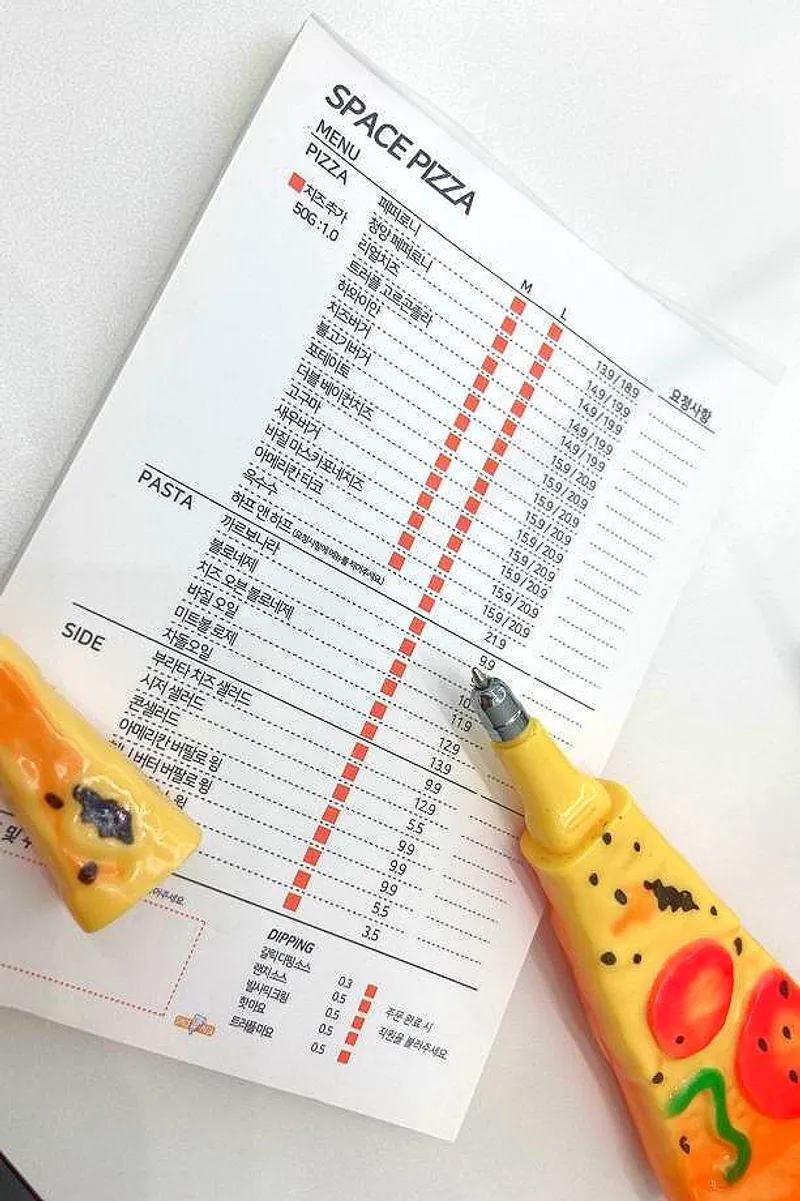 SPACE PIZZA
MENU
PIZZA
치즈 추가
50G : 1.0
M L
요청사항
페퍼로니 13.9 / 18.9
청양 페퍼로니 14.9 / 19.9
리얼치즈 14.9 / 19.9
트러플 고르곤졸라 14.9 / 19.9
하와이안 14.9 / 19.9
치즈버거 15.9 / 20.9
불고기버거 15.9 / 20.9
포테이토 15.9 / 20.9
더블 베이컨치즈 15.9 / 20.9
고구마 15.9 / 20.9
새우버거 15.9 / 20.9
바질 마스카포네치즈 15.9 / 20.9
아메리칸 타코 15.9 / 20.9
옥수수 15.9 / 20.9
하프 앤 하프 (요청사항에 메뉴를 적어주세요) 21.9
PASTA
까르보나라 9.9
볼로네제 10.
치즈 오븐 볼로네제 11.9
바질 오일 12.9
미트볼 로제 13.9
차돌오일 9.9
SIDE
부라타 치즈 샐러드 12.9
시저 샐러드 5.5
콘샐러드 9.9
아메리칸 버팔로 윙 9.9
버터 버팔로 윙 9.9
윙 5.5
3.5
및
어주세요
DIPPING
갈릭디핑소스 0.3
랜치소스 0.5
발사믹크림 0.5
핫마요 0.5
트러플마요 0.5
주문 완료 시
직원을 불러주세요